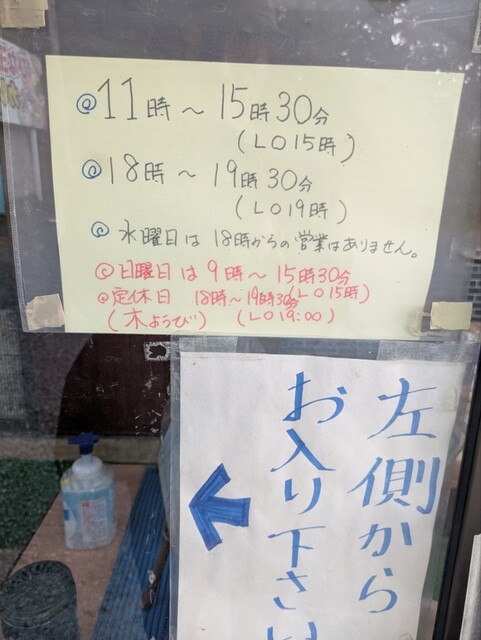 ◎11時～15時30分
(LO15時)
◎18時～19時30分
(LO19時)
◎水曜日は18時からの営業はありません。
◎日曜日は9時～15時30分
(LO15時)
◎定休日 18時～19時30分
(木ようび) (LO19:00)
左側から
お入り下さい